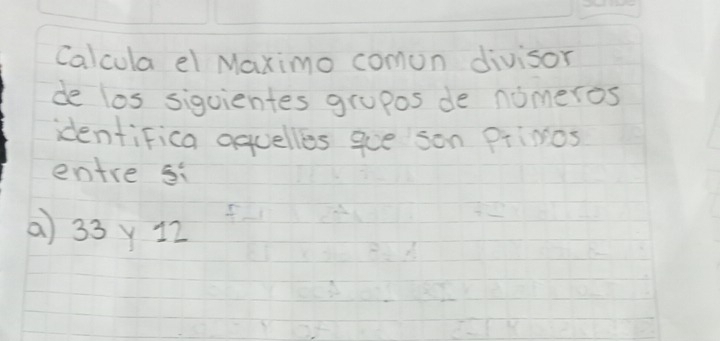 Calcula el Maximo comun divisor
de los siguientes grupos de números
identifica aquellos que son Primos
entre si
a) 33 y 12